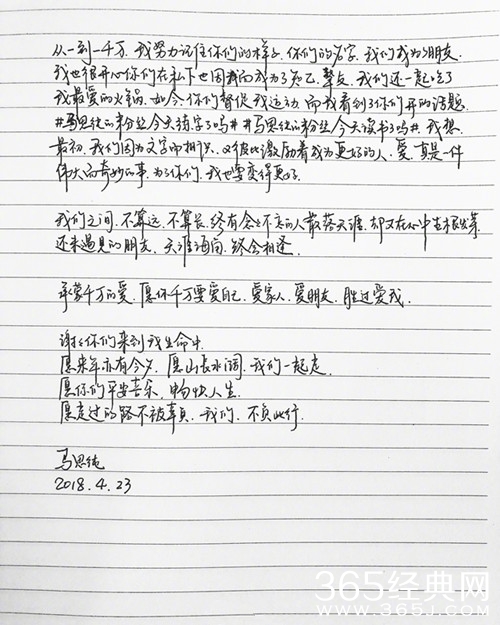 从一到一千万,我努力记住你们的样子,你们的名字,我们成为朋友.
我也很开心你们在私下也因我而成为了知己,挚友,我们还一起吃了
我最爱的火锅,如今,你们督促我运动,而我看到了你们开的话题
#马思纯的粉丝今天练字了吗##马思纯的粉丝今天读书了吗#我想
最初,我们因为文字而相识,又彼此激励着成为更好的人,爱,真是一件
伟大而奇妙的事,为了你们,我也要变得更好.
我们之间,不算远,不算长,终有念念不忘的人散落天涯,却又在心中生根发芽
还未遇见的朋友,天涯海角,终会相逢.
承蒙千万的爱,愿你千万要爱自己,爱家人,爱朋友,胜过爱我.
谢谢你们来到我生命中.
愿来年亦有今夕,愿山长水阔,我们一起走
愿你们平安喜乐,畅快人生
愿走过的路不被辜负,我们,不负此行.
马思纯
2018.4.23
365经典网
www.365j.com